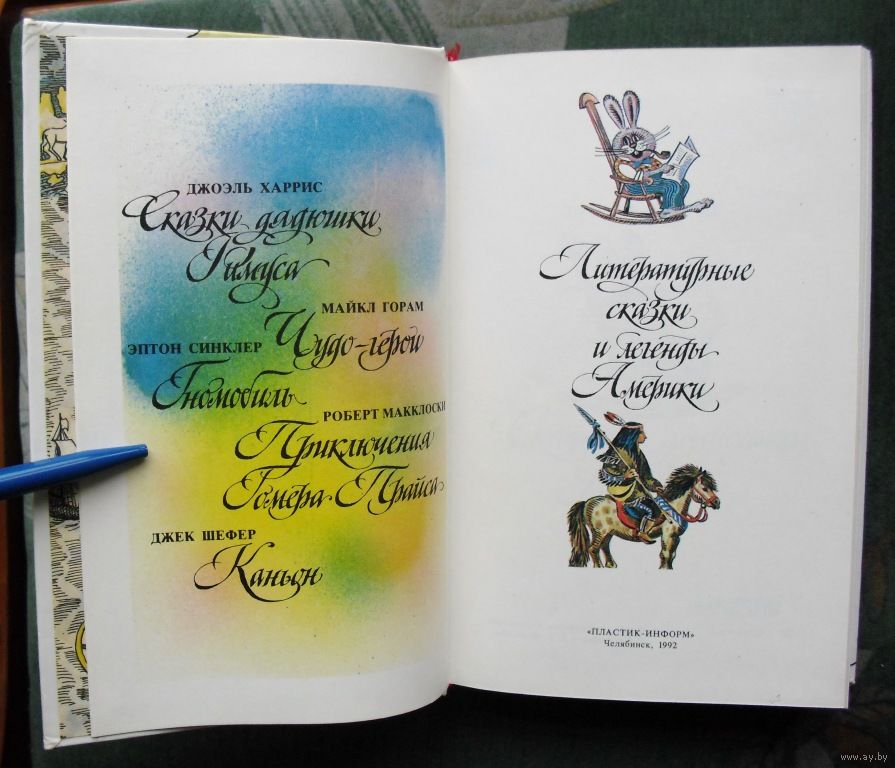 ДЖОЭЛЬ ХАРРИС
Сказки дядюшки
Римуса
МАЙКЛ ГОРАМ
Чудо-герои
ЭПТОН СИНКЛЕР
Гномобиль
РОБЕРТ МАККЛОСКИ
Приключения
Гомера Прайса
ДЖЕК ШЕФЕР
Каньон
Литературные
сказки
и легенды
Америки
«ПЛАСТИК-ИНФОРМ»
Челябинск, 1992
www.ay.by